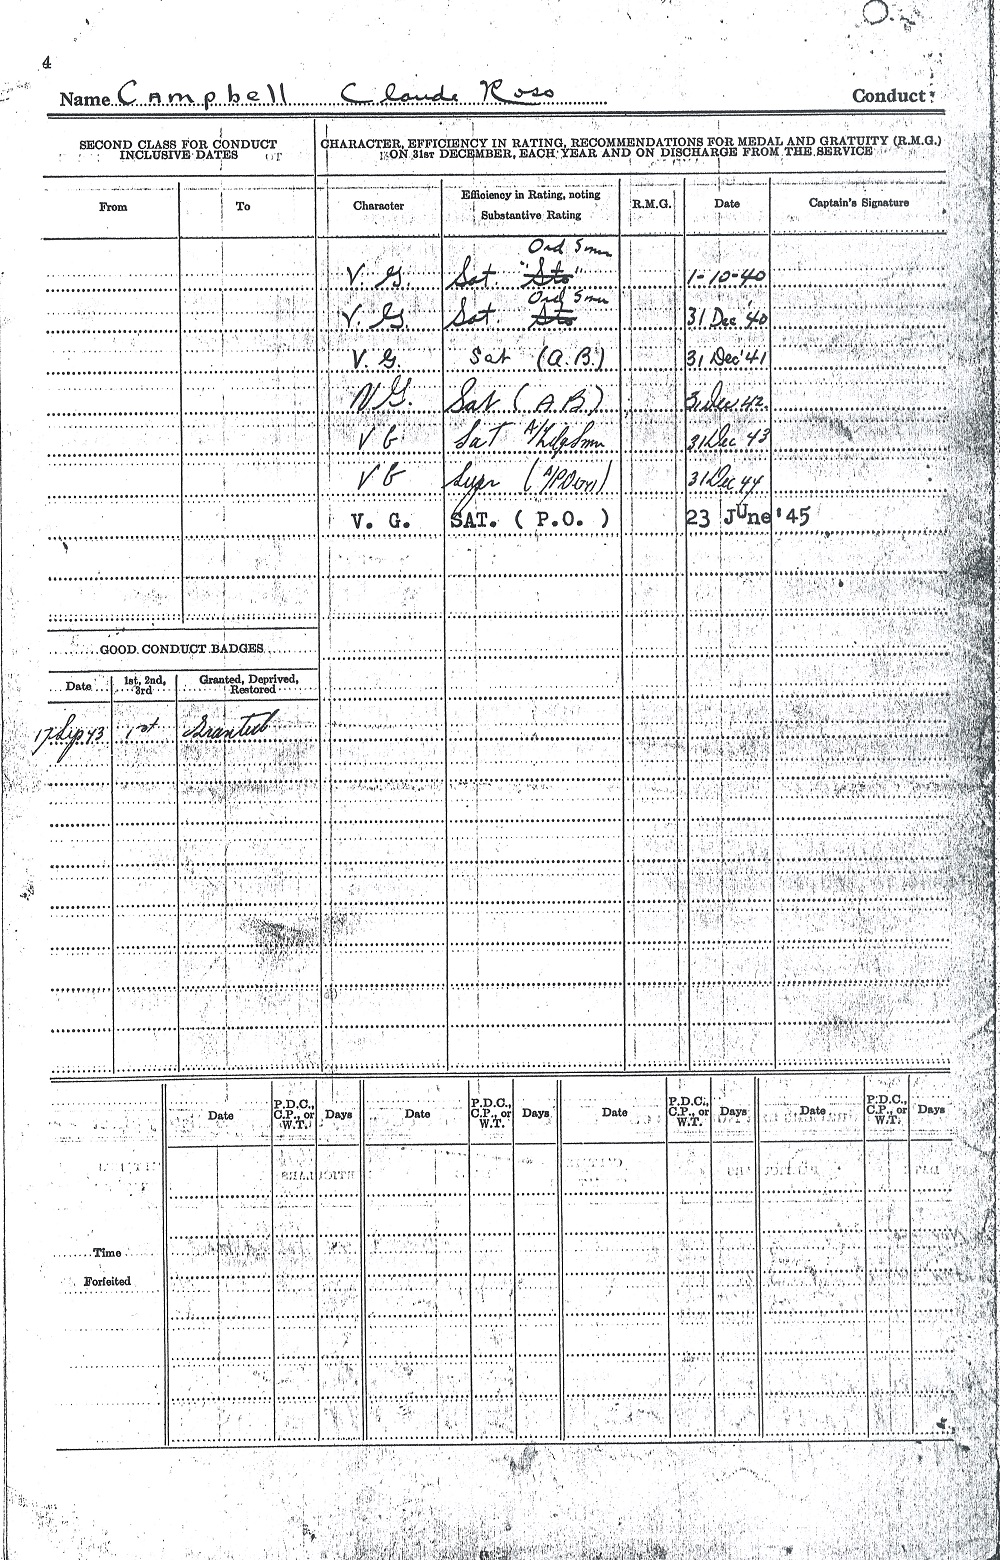 4
Name Campbell Claude Ross Conduct:
SECOND CLASS FOR CONDUCT
INCLUSIVE DATES
CHARACTER, EFFICIENCY IN RATING, RECOMMENDATIONS FOR MEDAL AND GRATUITY (R.M.G.)
ON 31st DECEMBER, EACH YEAR AND ON DISCHARGE FROM THE SERVICE
From To Character Efficiency in Rating, noting R.M.G. Date Captain's Signature
Substantive Rating
Ord Smn
V. G. Sat. "Sto" 1-10-40
Ord Smn
V. G. Sat. Sto 31 Dec '40
V. G. Sat (A.B.) 31 Dec '41
VG. Sat (A.B.) 31 Dec 42.
VG Sat A/Ldg Smn 31 Dec 43
VG Supr 31 Dec 44
V. G. SAT. ( P.O. ) 23 JUne '45
GOOD CONDUCT BADGES
Date 1st, 2nd, Granted, Deprived,
3rd Restored
17 Sep 43 1st Granted
Date P.D.C., C.P., or W.T. Days Date P.D.C., C.P., or W.T. Days Date P.D.C., C.P., or W.T. Days Date P.D.C., C.P., or W.T. Days
Time
Forfeited